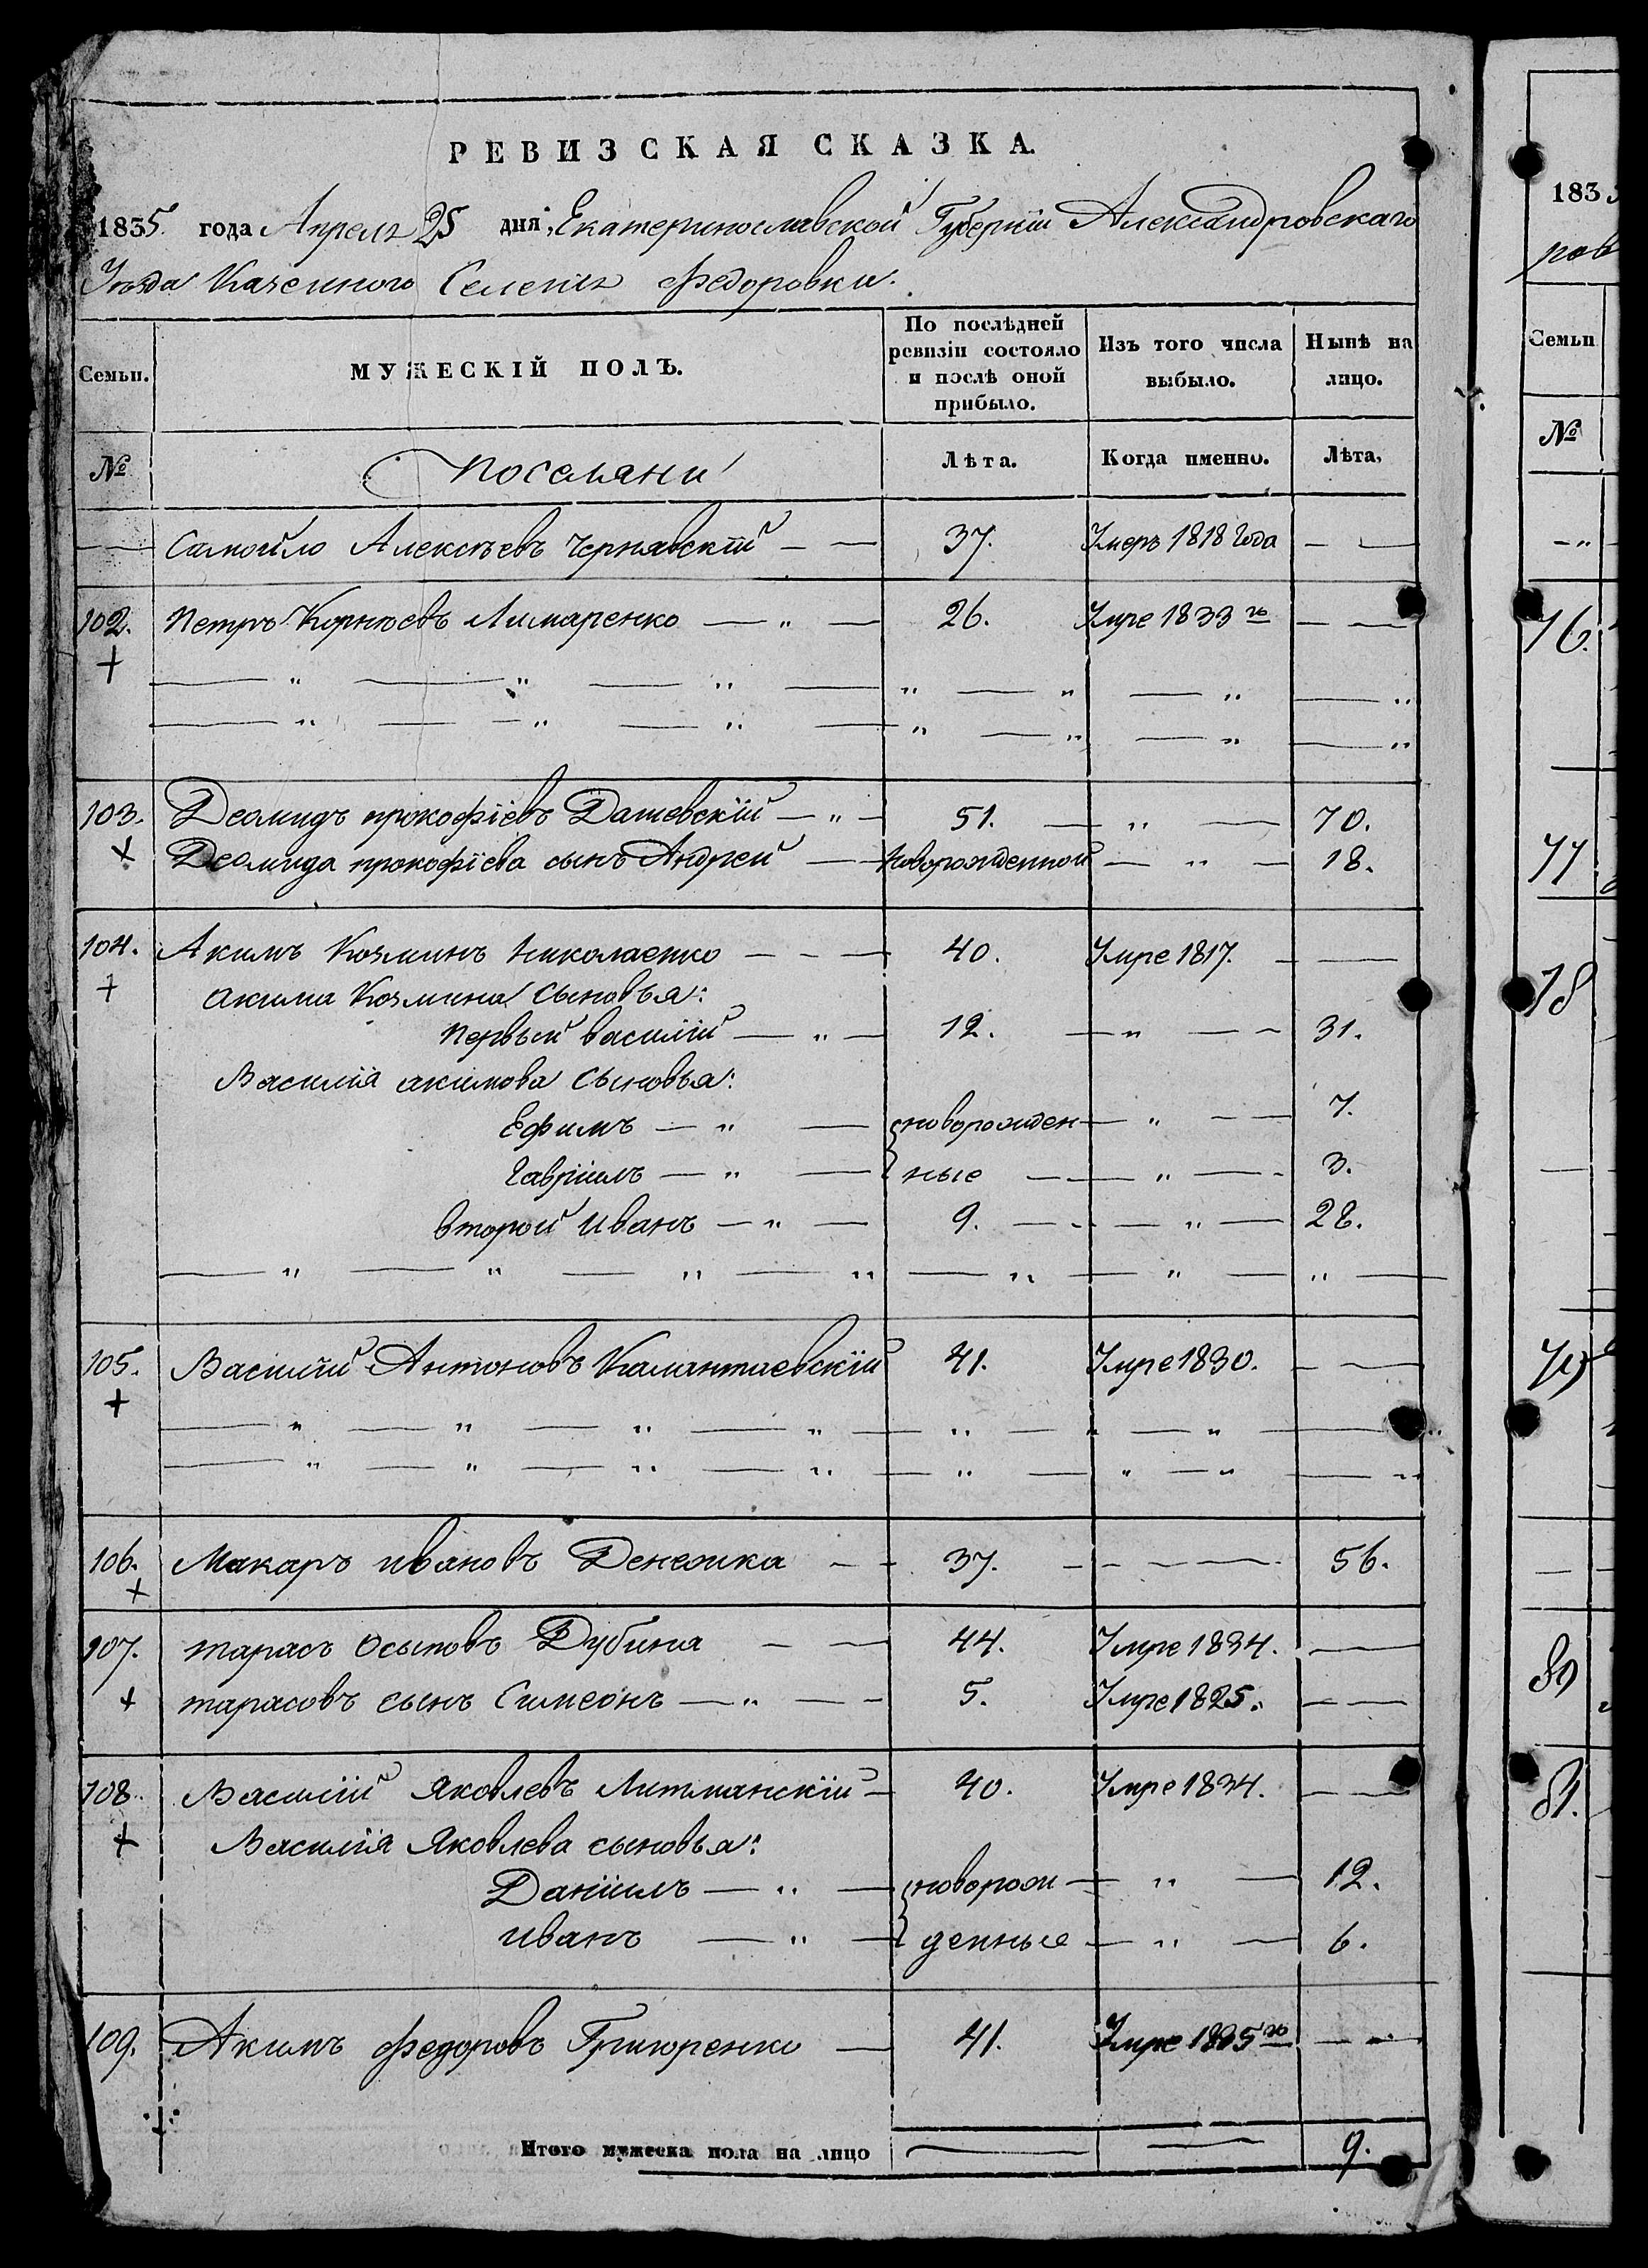 РЕВИЗСКАЯ СКАЗКА.
1835. года Апреля 25 дня, Екатеринославской Губерніи Александровскаго
Уезда Казенного Селенія Федоровки.
Семьи. МУЖЕСКІЙ ПОЛЪ. По послѣдней ревизіи состояло и послѣ оной прибыло. Изъ того числа выбыло. Нынѣ на лицо.
№ Поселяни Лѣта. Когда именно. Лѣта,
— Самойло Алексѣевъ Чернявскій — — 37. Умеръ 1818 Года — —
102. Петръ Корнѣевъ Лимаренко — " — 26. Умре 1833 го — —
+
— " — " — " — " — " — " — "
— " — " — " — " — " — " — "
103. Деомидъ прокофіевъ Дашевскій — " — 51. — " — 70.
+ Деомида прокофіева сынъ Андрей — новорожденной — " — 18.
104. Акимъ Козминъ Николаенко — — — 40. Умре 1817. — —
+ акима Козмина сыновья:
Первый василій — " — 12. — " — — 31.
Василія акимова сыновья:
Ефимъ — " — новорожден — " — — 7.
Гавріилъ — " — ные — — " — - 3.
второй иванъ — " — 9. — - — " — 28.
— " — " — " — " — " — " — " —
105. Василій Антоновъ Каламтаевскій 41. Умре 1830. — —
+
— " — " — " — " — " — " — " — "
— " — " — " — " — " — " — " — "
106. Макаръ ивановъ Денежка — - 37. — — — — 56.
+
107. тарасъ Осыповъ Дубина — — 44. Умре 1834. —
+ тарасовъ сынъ Симеонъ — " — - 5. Умре 1825. — —
108. Василій Яковлевъ Литманскій — 40. Умре 1834. — —
+ Василія Яковлева сыновья:
Даніилъ — " — новорож — " — 12.
иванъ — " — денные — " — 6.
109. Акимъ федоровъ Григоренко — 41. Умре 1835 го — —
Итого мужеска пола на лицо — — 9.
183
ров
Семьи
№
— "
76.
77
78
79
80
81.